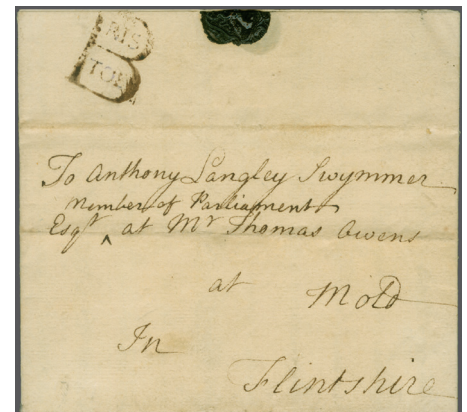 RIS
TOL
To Anthony Langley Swymmer
member of Parliament
Esqr ^ at Mr Thomas Owens
at Mold
In
Flintshire